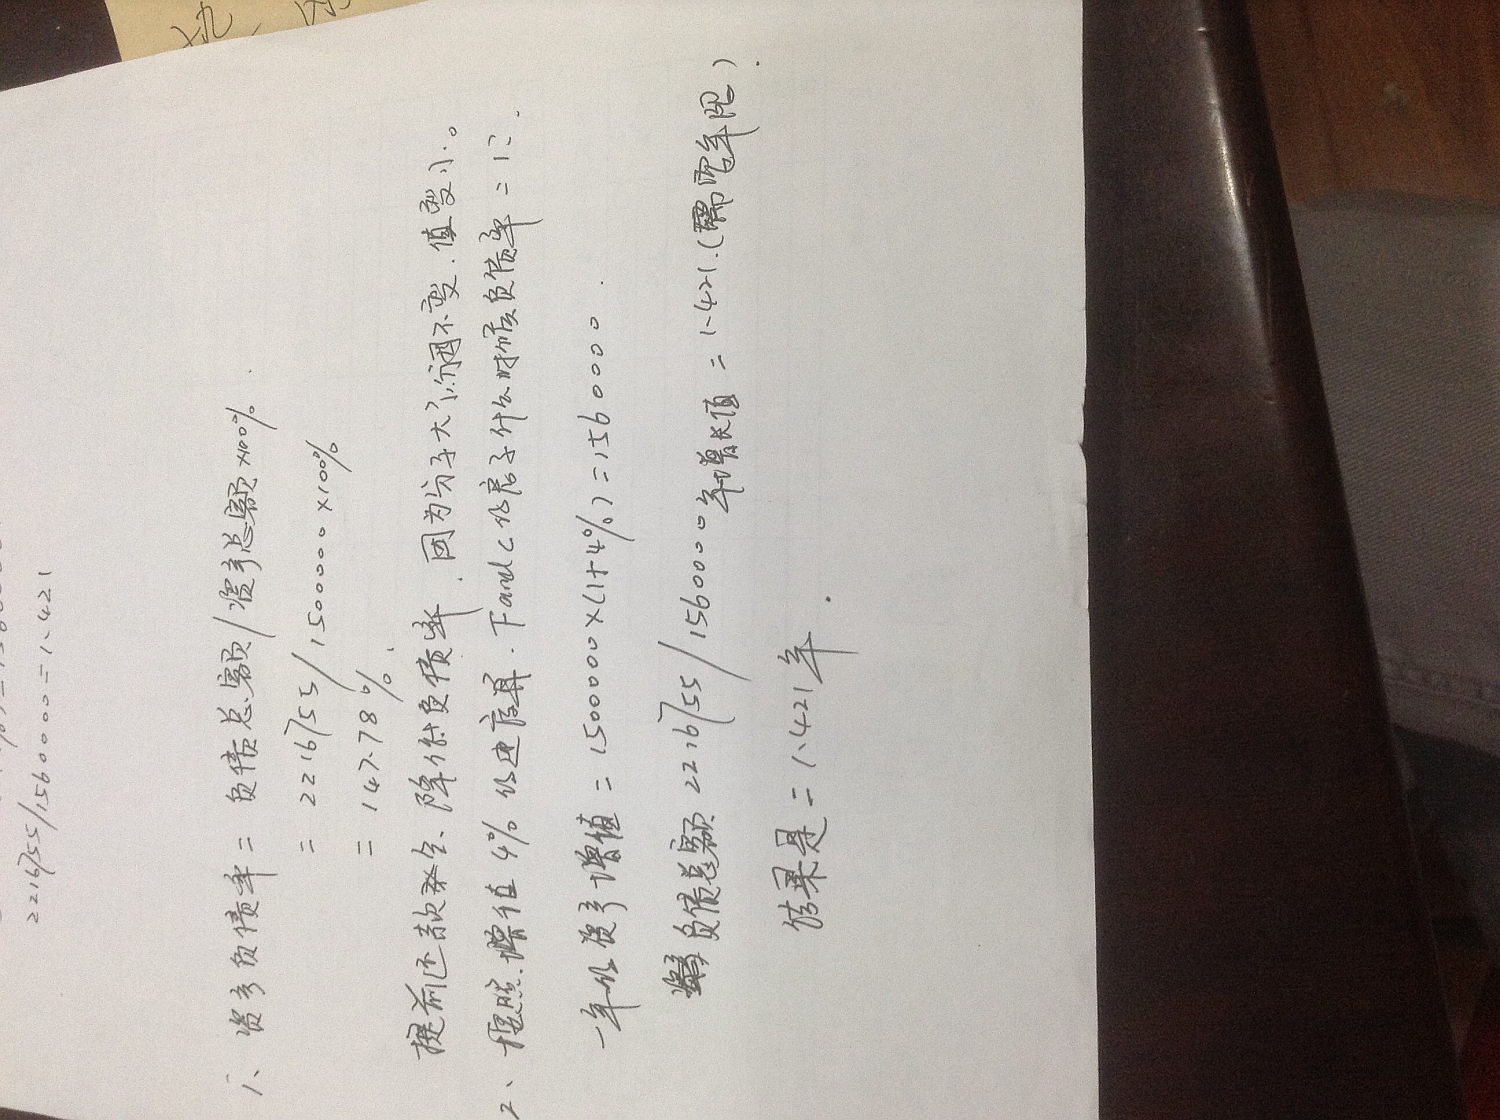 2216755/1560000=1.421
1、资产负债率=负债总额/资产总额×100%.
=2216755/1500000×100%
=147.78%.
提前还款会、降低负债率.因为分子大了.分母不变.值变小。
2、按照增值4%的速度算.Tand C的房子什么时候负债率=1?.
一年的资产增值=1500000×(1+4%)=1560000.
负债总额2216755/1560000年增长值=1.421.(需要年限).
结果是=1.421年.